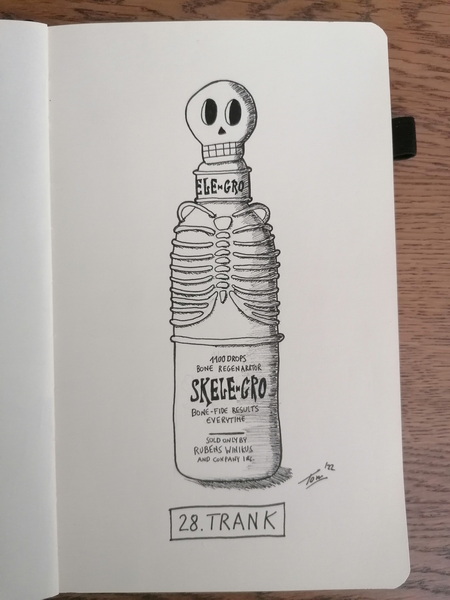 ELE-GRO
1100 DROPS
BONE REGENARTOR
SKELE-GRO
BONE-FIDE RESULTS
EVERYTIME
SOLD ONLY BY
RUBENS WINIKUS
AND COMPANY INC.
Tom '22
28. TRANK